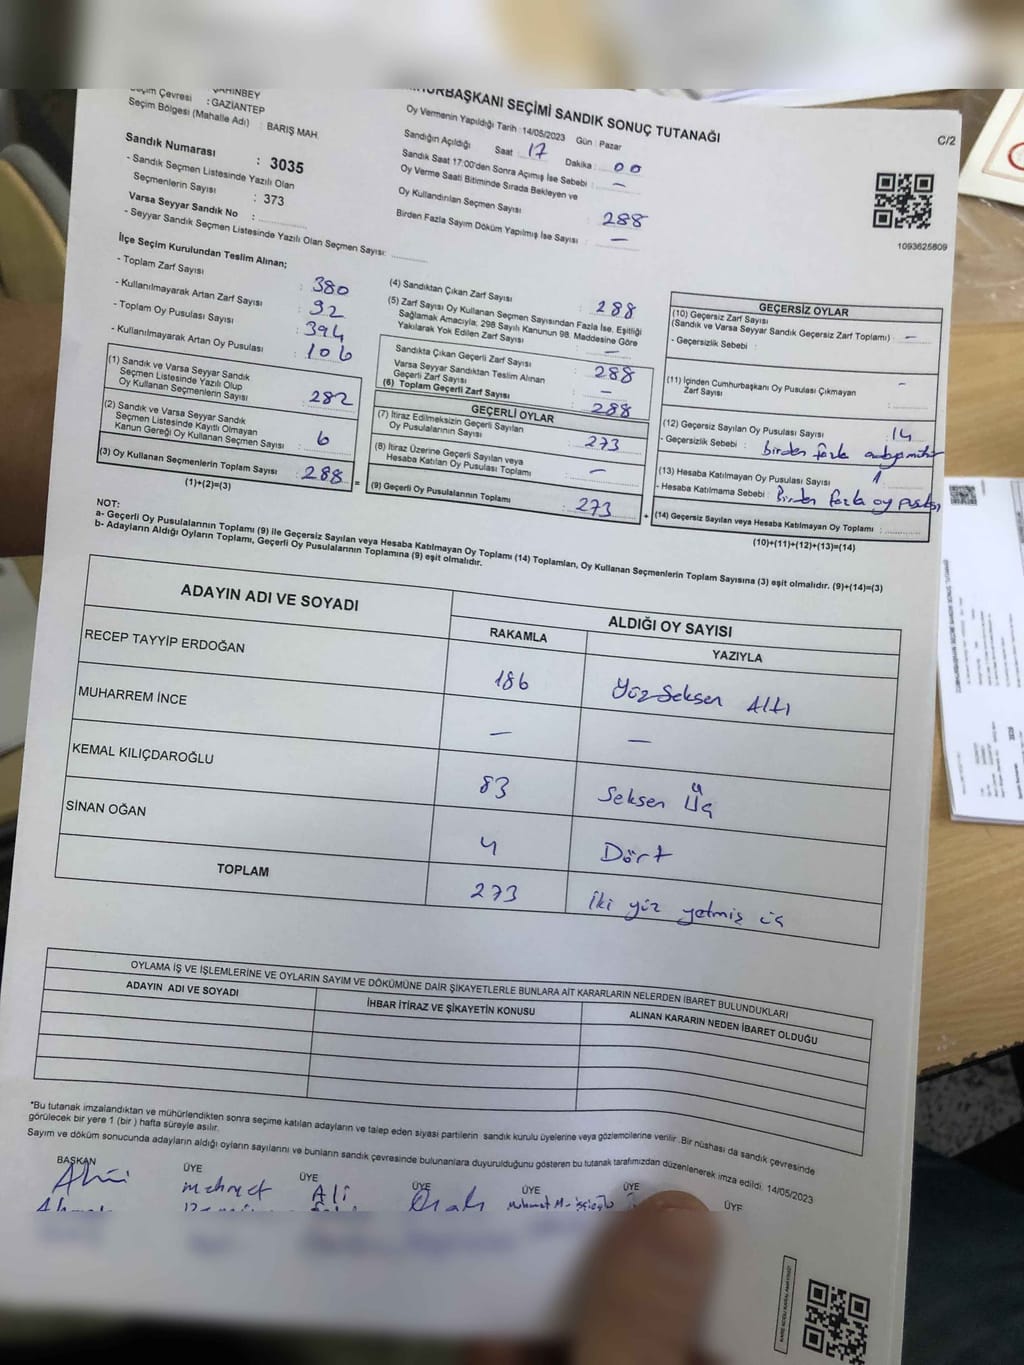 ŞAHİNBEY
Seçim Çevresi : GAZİANTEP
Seçim Bölgesi (Mahalle Adı) : BARIŞ MAH.
Sandık Numarası : 3035
- Sandık Seçmen Listesinde Yazılı Olan
Seçmenlerin Sayısı : 373
Varsa Seyyar Sandık No :
- Seyyar Sandık Seçmen Listesinde Yazılı Olan Seçmen Sayısı:
SEÇİMİ SANDIK SONUÇ TUTANAĞI
Oy Vermenin Yapıldığı Tarih : 14/05/2023 Gün : Pazar
Sandığın Açıldığı Saat : 17 Dakika : 00
Sandık Saat 17:00'den Sonra Açılmış İse Sebebi : —
Oy Verme Saati Bitiminde Sırada Bekleyen ve
Oy Kullandırılan Seçmen Sayısı : 288
Birden Fazla Sayım Döküm Yapılmış İse Sayısı : —
C/2
1093625809
İlçe Seçim Kurulundan Teslim Alınan;
- Toplam Zarf Sayısı : 380
- Kullanılmayarak Artan Zarf Sayısı : 92
- Toplam Oy Pusulası Sayısı : 394
- Kullanılmayarak Artan Oy Pusulası : 106
(1) Sandık ve Varsa Seyyar Sandık
Seçmen Listesinde Yazılı Olup
Oy Kullanan Seçmenlerin Sayısı : 282
(2) Sandık ve Varsa Seyyar Sandık
Seçmen Listesinde Kayıtlı Olmayan
Kanun Gereği Oy Kullanan Seçmen Sayısı : 6
(3) Oy Kullanan Seçmenlerin Toplam Sayısı : 288
(1)+(2)=(3)
(4) Sandıktan Çıkan Zarf Sayısı : 288
(5) Zarf Sayısı Oy Kullanan Seçmen Sayısından Fazla İse, Eşitliği
Sağlamak Amacıyla, 298 Sayılı Kanunun 98. Maddesine Göre
Yakılarak Yok Edilen Zarf Sayısı : —
Sandıkta Çıkan Geçerli Zarf Sayısı : 288
Varsa Seyyar Sandıktan Teslim Alınan
Geçerli Zarf Sayısı : —
(6) Toplam Geçerli Zarf Sayısı : 288
GEÇERLİ OYLAR
(7) İtiraz Edilmeksizin Geçerli Sayılan
Oy Pusulalarının Sayısı : 273
(8) İtiraz Üzerine Geçerli Sayılan veya
Hesaba Katılan Oy Pusulası Toplamı : —
(9) Geçerli Oy Pusulalarının Toplamı : 273
GEÇERSİZ OYLAR
(10) Geçersiz Zarf Sayısı
(Sandık ve Varsa Seyyar Sandık Geçersiz Zarf Toplamı) : —
- Geçersizlik Sebebi :
(11) İçinden Cumhurbaşkanı Oy Pusulası Çıkmayan
Zarf Sayısı : -
(12) Geçersiz Sayılan Oy Pusulası Sayısı : 14
- Geçersizlik Sebebi : birden fazla
(13) Hesaba Katılmayan Oy Pusulası Sayısı : 1
- Hesaba Katılmama Sebebi : Birden fazla oy pusulası
(14) Geçersiz Sayılan veya Hesaba Katılmayan Oy Toplamı :
(10)+(11)+(12)+(13)=(14)
NOT:
a- Geçerli Oy Pusulalarının Toplamı (9) ile Geçersiz Sayılan veya Hesaba Katılmayan Oy Toplamı (14) Toplamları, Oy Kullanan Seçmenlerin Toplam Sayısına (3) eşit olmalıdır. (9)+(14)=(3)
b- Adayların Aldığı Oyların Toplamı, Geçerli Oy Pusulalarının Toplamına (9) eşit olmalıdır.
ADAYIN ADI VE SOYADI
ALDIĞI OY SAYISI
RAKAMLA YAZIYLA
RECEP TAYYİP ERDOĞAN 186 Yüz Seksen Altı
MUHARREM İNCE — —
KEMAL KILIÇDAROĞLU 83 Seksen Üç
SİNAN OĞAN 4 Dört
TOPLAM 273 iki yüz yetmiş üç
OYLAMA İŞ VE İŞLEMLERİNE VE OYLARIN SAYIM VE DÖKÜMÜNE DAİR ŞİKAYETLERLE BUNLARA AİT KARARLARIN NELERDEN İBARET BULUNDUKLARI
ADAYIN ADI VE SOYADI İHBAR İTİRAZ VE ŞİKAYETİN KONUSU ALINAN KARARIN NEDEN İBARET OLDUĞU
*Bu tutanak imzalandıktan ve mühürlendikten sonra seçime katılan adayların ve talep eden siyasi partilerin sandık kurulu üyelerine veya gözlemcilerine verilir .Bir nüshası da sandık çevresinde
görülecek bir yere 1 (bir ) hafta süreyle asılır.
Sayım ve döküm sonucunda adayların aldığı oyların sayılarını ve bunların sandık çevresinde bulunanlara duyurulduğunu gösteren bu tutanak tarafımızdan düzenlenerek imza edildi. 14/05/2023
BAŞKAN ÜYE ÜYE ÜYE ÜYE ÜYE ÜYE
Mehmet Ali